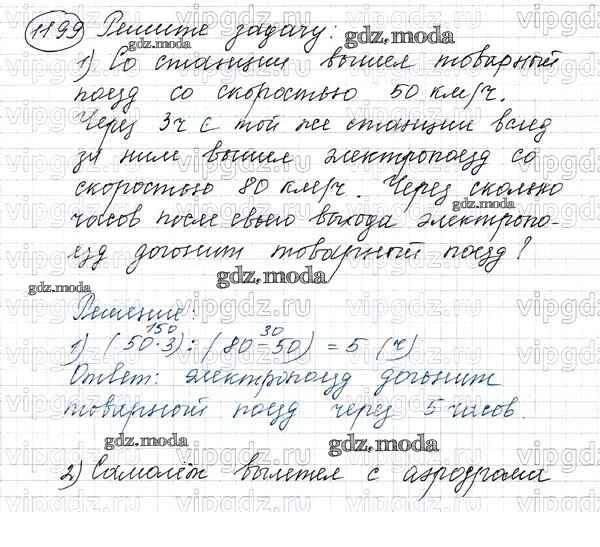 1199 Решите задачу:
gdz.moda gdz.moda
1) Со станции вышел товарный
поезд со скоростью 50 км/ч.
Через 3ч с той же станции вслед
за ним вышел электропоезд со
скоростью 80 км/ч. Через сколько
часов после своего выхода электропо-
езд догонит товарный поезд?
gdz.moda gdz.moda gdz.moda gdz.moda
Решение:
150 30
1) (50·3):(80-50) = 5 (ч)
Ответ: электропоезд догонит
товарный поезд через 5 часов.
gdz.moda gdz.moda
2) Самолёт вылетел с аэродрома